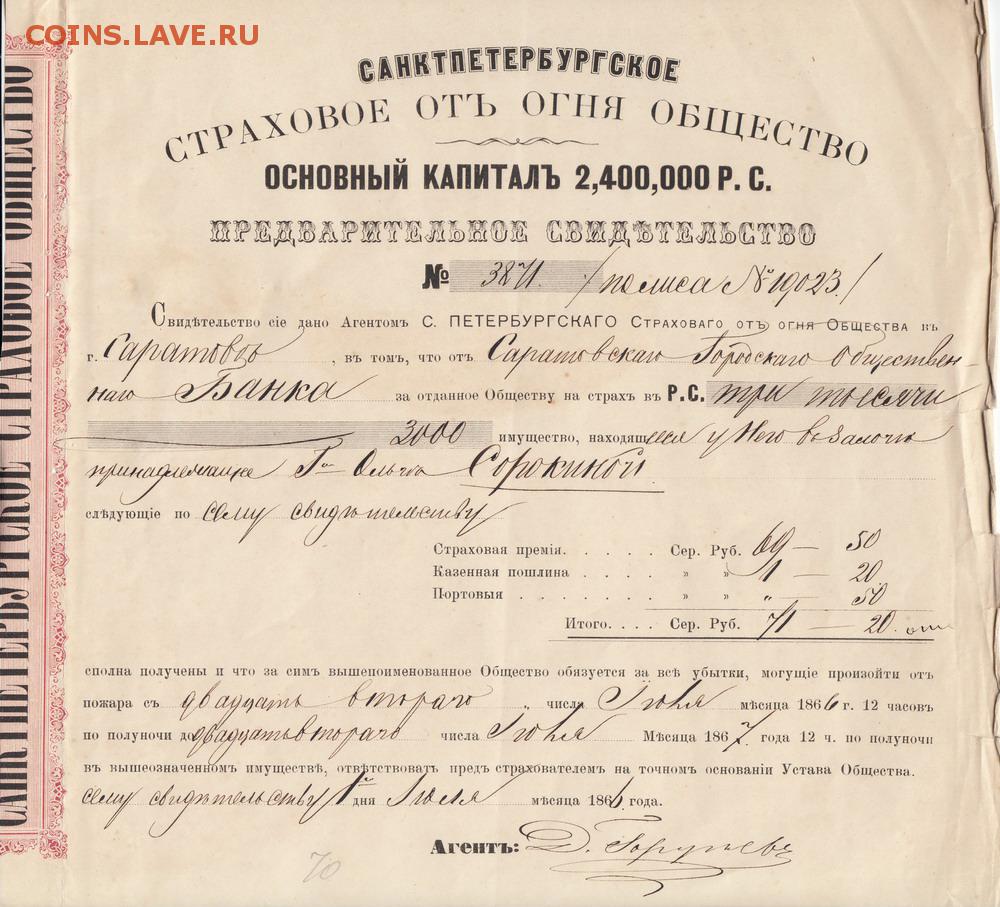 COINS.LAVE.RU
САНКТПЕТЕРБУРГСКОЕ СТРАХОВОЕ ОБЩЕСТВО
САНКТПЕТЕРБУРГСКОЕ
СТРАХОВОЕ ОТЪ ОГНЯ ОБЩЕСТВО
ОСНОВНЫЙ КАПИТАЛЪ 2,400,000 Р. С.
ПРЕДВАРИТЕЛЬНОЕ СВИДѢТЕЛЬСТВО
№ 3871. /полиса № 19023./
Свидѣтельство сіе дано Агентомъ С. ПЕТЕРБУРГСКАГО Страховаго отъ огня Общества въ
г. Саратовѣ , въ томъ, что отъ Саратовскаго Городскаго Обществен-
наго Банка за отданное Обществу на страхъ въ Р.С. три тысячи
3000 имущество, находящееся у Него въ залогѣ
принадлежащее Г-жѣ Ольгѣ Сорокиной
слѣдующіе по сему свидѣтельству
Страховая премія. . . . . . Сер. Руб. 69 — 50
Казенная пошлина . . . . . » » 1 — 20
Портовыя . . . . . . . . » » „ — 50
Итого. . . . Сер. Руб. 71 — 20.
сполна получены и что за симъ вышепоименованное Общество обязуется за всѣ убытки, могущіе произойти отъ
пожара съ двадцать втораго „ числа Іюля мѣсяца 1866 г. 12 часовъ
по полуночи до двадцать втораго числа Іюля Мѣсяца 1867. года 12 ч. по полуночи
въ вышеозначенномъ имуществѣ, отвѣтствовать предъ страхователемъ на точномъ основаніи Устава Общества.
сему свидѣтельству 1й дня Іюля мѣсяца 1866 года.
Агентъ: Д.
70